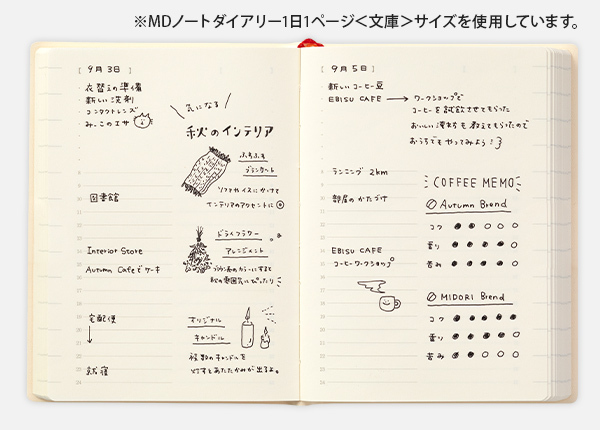 ※MDノートダイアリー1日1ページ<文庫>サイズを使用しています。
[ 9月3日 ]
・衣替えの準備
・新しい洗剤
・コンタクトレンズ
・みーこのエサ
図書館
Interior Store
Autumn Cafeでケーキ
宅配便
就寝
気になる
秋のインテリア
ふちふさ
ブランケット
ソファやイスにかけて
インテリアのアクセントに
ドライフラワー
アレンジメント
秋の雰囲気にぴったり
オリジナル
キャンドル
複数のキャンドルを
灯すとあたたかみが出るよ。
[ 9月5日 ]
・新しいコーヒー豆
・EBISU CAFE → ワークショップで
コーヒーを試飲させてもらった
おいしい淹れ方も教えてもらったので
おうちでもやってみよう!
ランニング 2km
部屋のかたづけ
EBISU CAFE
コーヒーワークショップ
COFFEE MEMO
Autumn Brend
コク ●●○○○
香り ●●●●○
苦み ●●●●○
MIDORI Brend
コク ●●●●●
香り ●●●●○
苦み ●●○○○